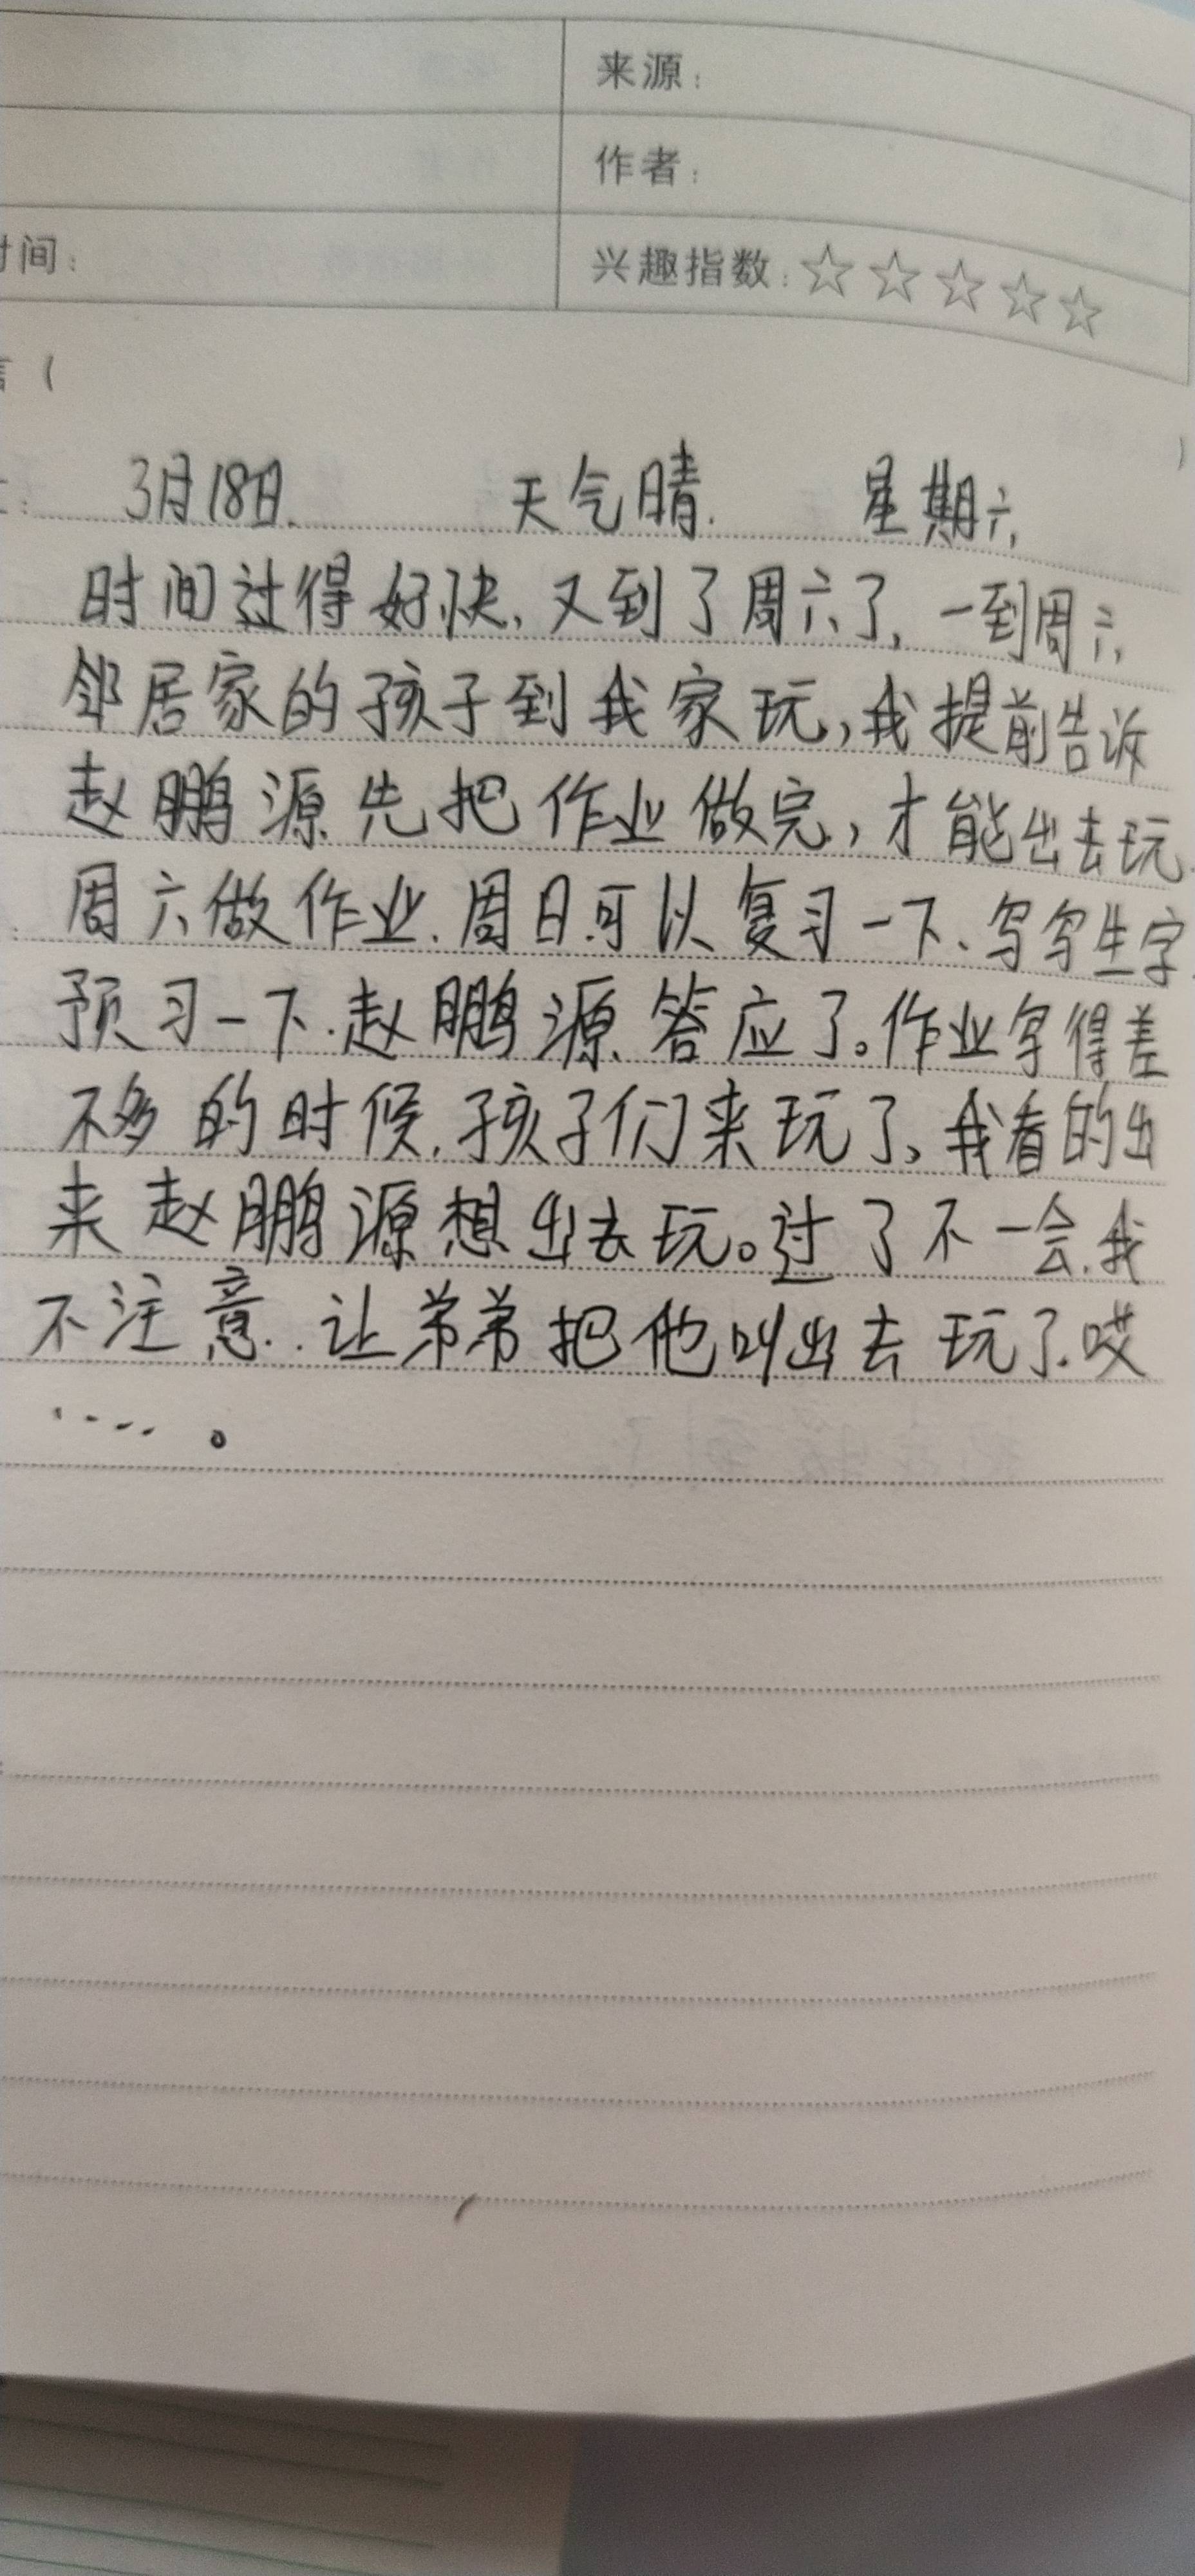 来源:
作者:
时间:
兴趣指数:☆☆☆☆☆
(
)
3月18日. 天气晴. 星期六,
时间过得好快,又到了周六了,一到周六,
邻居家的孩子到我家玩,我提前告诉
赵鹏源先把作业做完,才能出去玩.
周六做作业.周日可以复习一下、写写生字.
预习一下.赵鹏源答应了。作业写得差
不多的时候.孩子们来玩了,我看的出
来赵鹏源想出去玩。过了不一会.我
不注意..让弟弟把他叫出去玩了.哎
····。